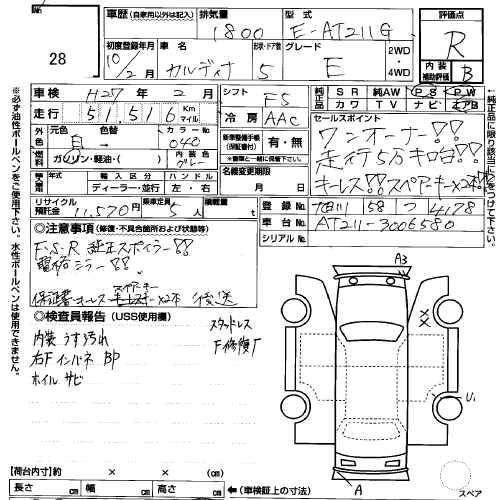 28
車歴 (自家用以外は記入) 排気量 1800 型式 E-AT211G
評価点 R
内装補助評価 B
初度登録年月 10/2月 車名 カルディナ 形状・ドア数 5 グレード E 2WD・4WD
車検 H27年 2月 シフト F5
純正品 SR 純AW PS PW
カワ TV ナビ エアB
走行 51,516 km マイル 冷房 AAC
セールスポイント
ワンオーナー!!
走行5万キロ台!!
キーレス!! スペアーキー×2本!!
外色 元色 白→ 色替 カラーNo 040
新車整備手帳(保証書付) 有・無
※書類と一緒に保管下さい。
燃料 ガソリン・軽油・( ) 内装色 グレー
名義変更期限 月 日
輸入車 年式 輸入区分 ディーラー・並行 ハンドル 左・右
リサイクル預託金 11,570円 乗車定員 5人 積載量 t
登録No. 旭川 58 つ 4178
車台No. AT211-3006580
シリアルNo.
◎注意事項 (修復・不具合箇所および状態等)
F・S・R 純正スポイラー!!
電格ミラー!!
保証書・キーレス スペアーキー×2本 後送
◎検査員報告 (USS使用欄)
内装 うす汚れ
右Fインパネ BP
ホイル サビ
スタッドレス
F修復了
A3
××
U1
A
スペア
【荷台内寸】約 × × (cm)
長さ cm 幅 cm 高さ cm ←(車検証上の寸法)
※必ず油性ボールペンをご使用下さい。水性ボールペンは使用不可。